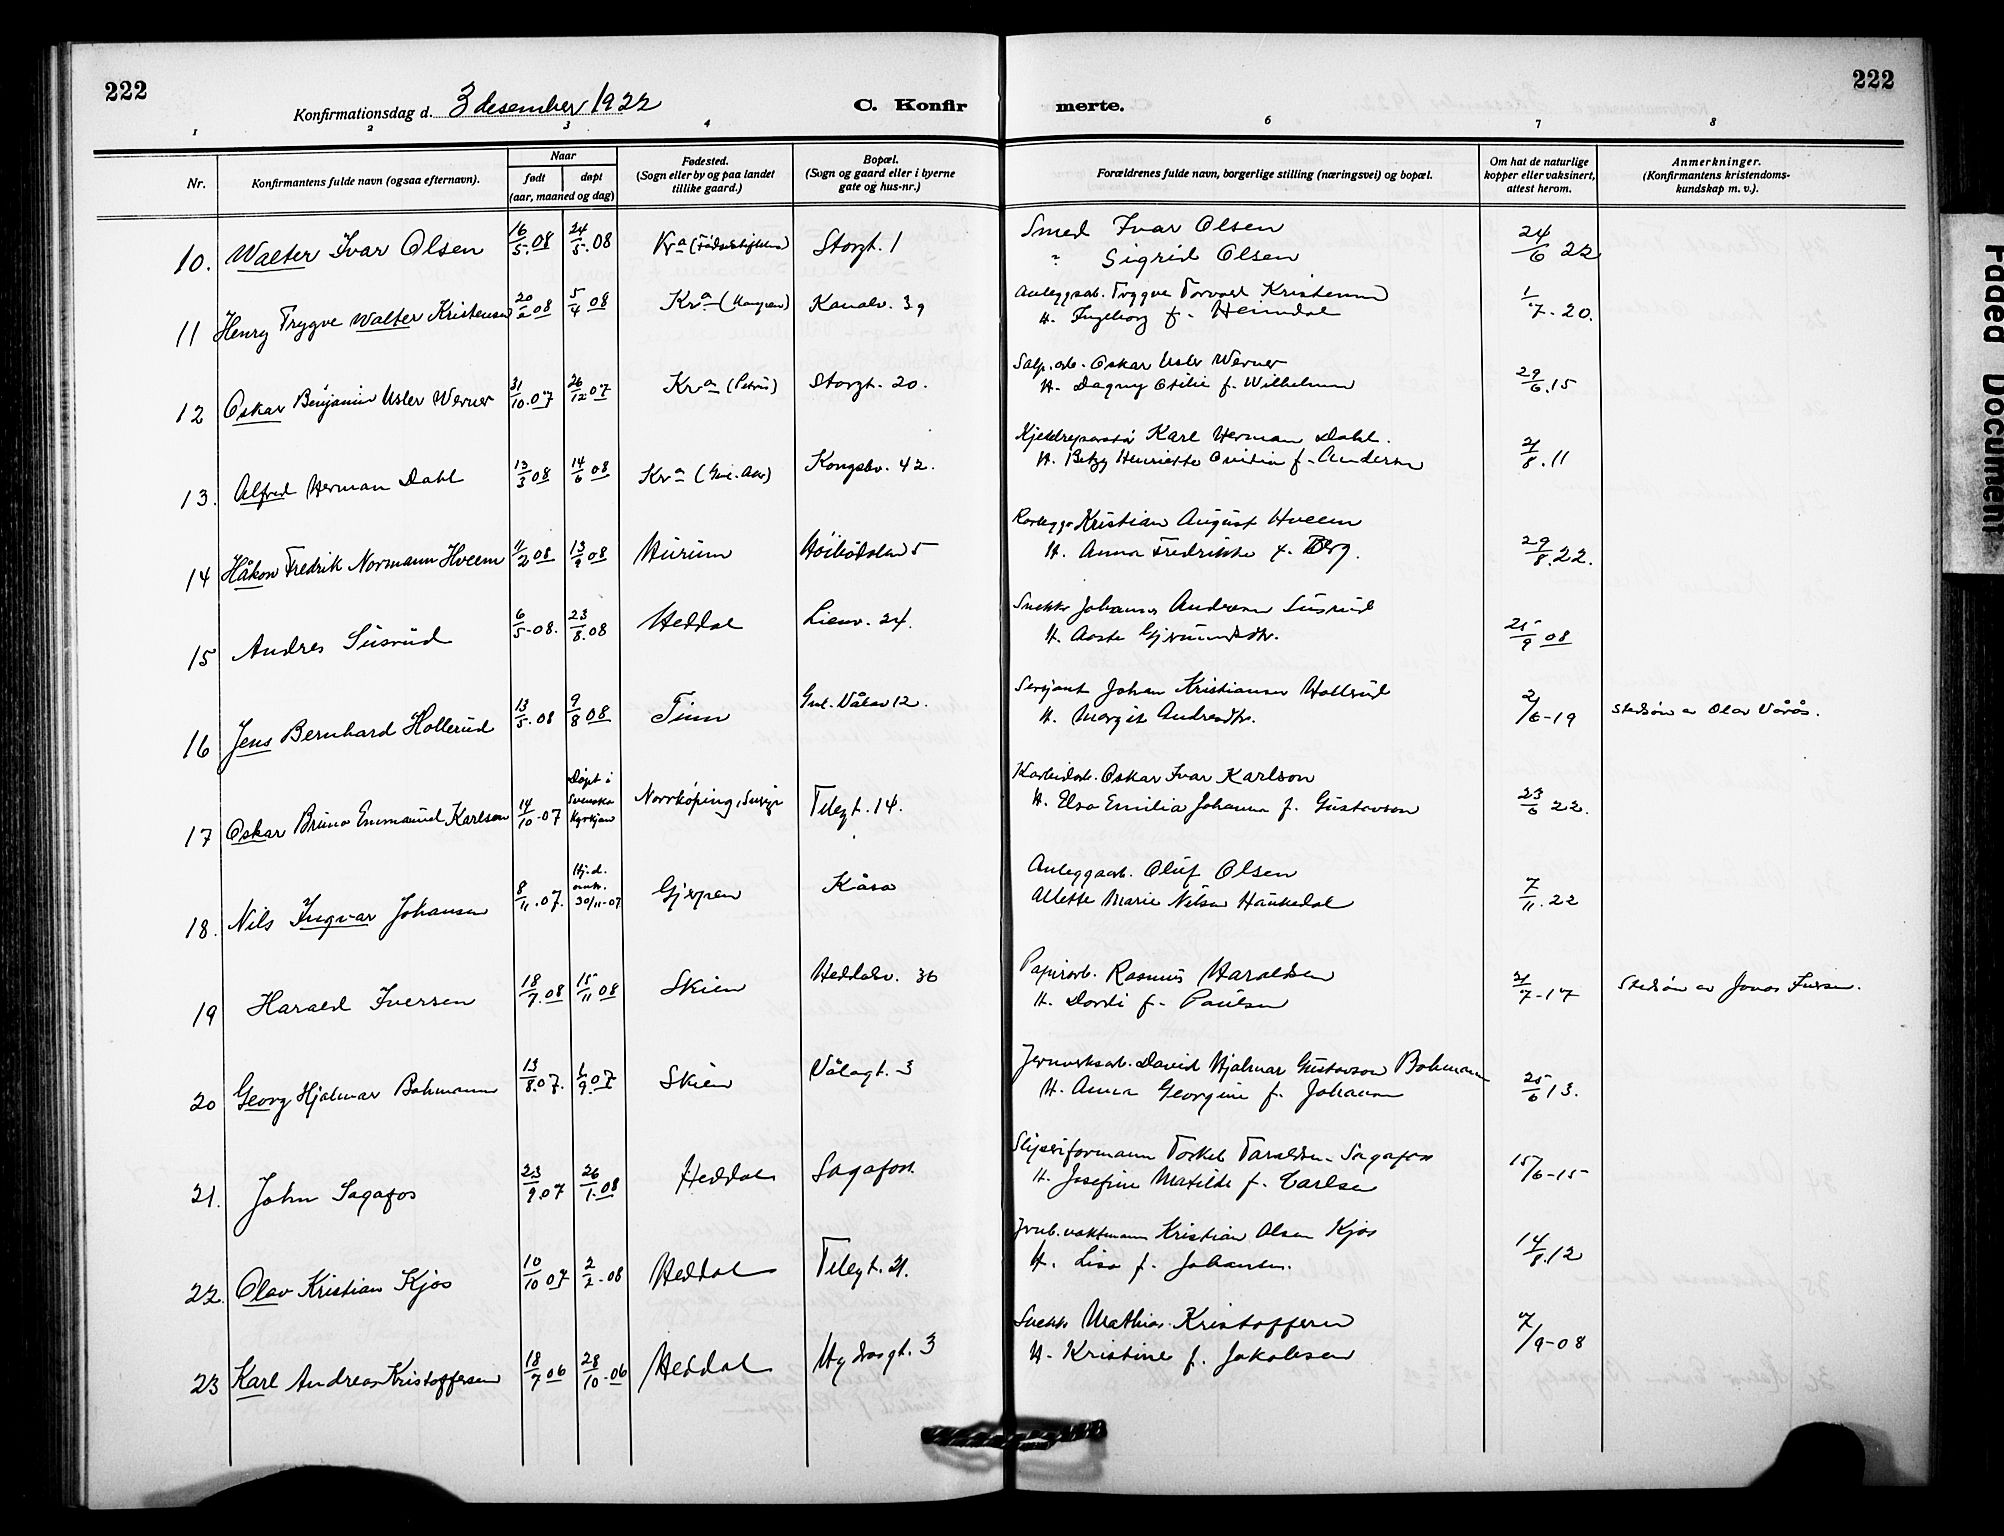 222
222
Konfirmationsdag d. 3 desember 1922
C. Konfir merte.
1 2 3 4 6 7 8
Nr.
Konfirmantens fulde navn (ogsaa efternavn).
Naar
født døpt
(aar, maaned og dag)
Fødested.
(Sogn eller by og paa landet
tillike gaard.)
Bopæl.
(Sogn og gaard eller i byerne
gate og hus-nr.)
Forældrenes fulde navn, borgerlige stilling (næringsvei) og bopæl.
Om hat de naturlige
kopper eller vaksinert,
attest herom.
Anmerkninger.
(Konfirmantens kristendoms-
kundskap m. v.).
10. Walter Ivar Olsen 16/5-08 24/5-08 Kra Storgt. 1 Smed Ivar Olsen 24/6 22
" Sigrid Olsen
11 Henry Trygve Walter Kristensen 20/2 08 5/4 08 Kra Kanalv. 39 Anleggsarb. Trygve Torvald Kristensen 1/7-20.
H. Ingeborg f. Heimdal
12 Oskar Benjamin Usler Werner 31/10.07 26/12 07 Kra (Petrus) Storgt. 20. Salp. arb. Oskar Usler Werner 29/6.15
H. Dagny Otilie f. Wilhelmsen
13. Alfred Herman Dahl 13/3 08 14/6 08 Kra (Gml. Aker) Kongsbv. 42. Kjelelreparatør Karl Herman Dahl. 2/8.11
H. Betzy Henriette f. Andersen
14 Håkon Fredrik Normann Hveem 11/2 08 13/9 08 Hurum 5 Kristian August Hveem 29/8.22.
H. Anna Fredrikke f. Berg.
15 Andres Susrud 6/5-08. 23/8.08 Heddal Lienv. 24. Snekker Johannes Andresen Susrud 25/9 08
H. Aaste Gjermundsdtr.
16 Jens Bernhard Hollerud 13/5-08 9/8 08 Tinn Gml. Vålav 12. Sersjant Johan Kristiansen Hollerud 2/6-19 stedsøn av Olav Vårås.
H. Margit Andresdtr.
17 Oskar Bruno Emmanuel Karlson 14/10-07 Døpt i Svenska Kyrkjan Norrköping, Sverge Telegt. 14. Karbidarb. Oskar Ivar Karlson 23/6 22.
H. Elsa Emilia Johanna f. Gustavson
18. Nils Ingvar Johansen 8/11.07. Hj.d. 30/11-07 Gjerpen Kåsa Anleggsarb. Oluf Olsen 7/11.22
Allette Marie Nilsen Haukedal
19 Harald Iversen 18/7.08 15/11 08 Skien Heddalsv. 36 Papirarb. Rasmus Haraldsen 2/7-17 Stedsøn av Jonas Iversen.
H. Dordi f. Paulsen
20 Georg Hjalmar Bohmann 13/8.07. 1/9.07 Skien Vålagt. 3 Jernverksarb. David Hjalmar Gustavson Bohmann 25/6 13.
H. Anna Georgine f. Johansen
21. John Sagafos 23/9.07 26/1.08 Heddal Sagafoss Sliperiformann Torkel Taraldsen Sagafos 15/6-15
H. Josefine Matilde f. Carlsen
22. Olav Kristian Kjos 10/10 07 2/2-08 Heddal Telegt. 21. Jrnb. vaktmann Kristian Olsen Kjos 14/8.12
H. Lisa f. Johansen.
23 Karl Andreas Kristoffersen 18/7 06 28/10-06 Heddal Hydrogt. 3 Snekker Mathias Kristoffersen 7/9-08
H. Kristine f. Jakobsen
Faded Document